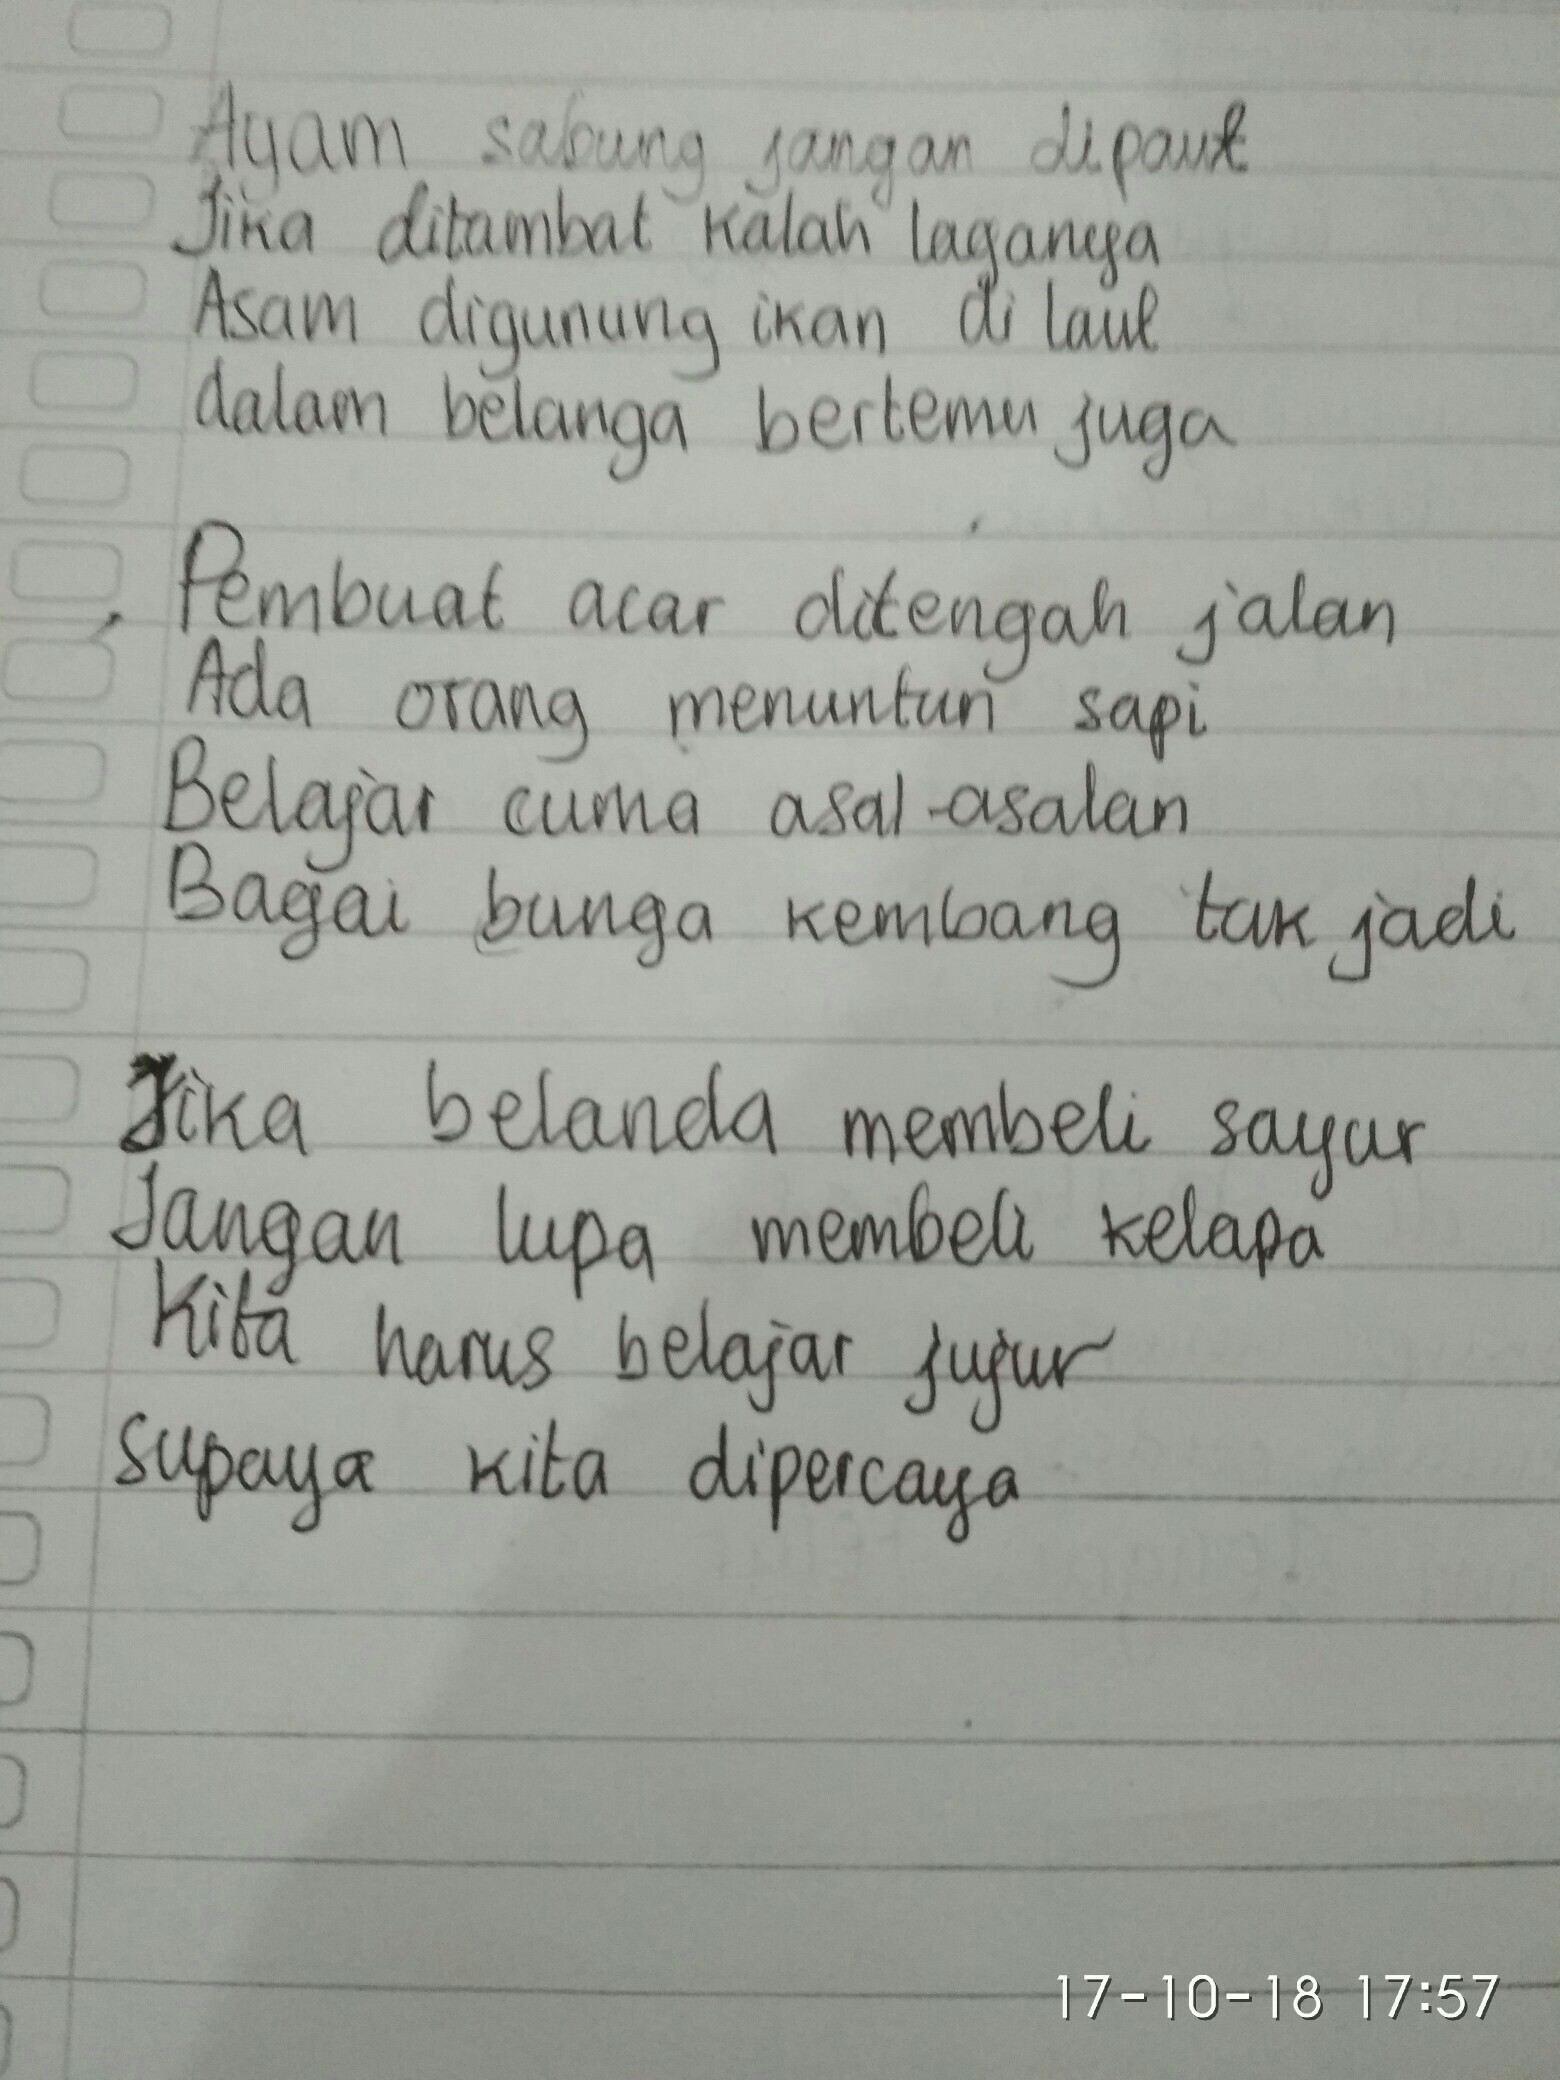 Ayam sabung jangan dipaut
Jika ditambat kalah laganya
Asam digunung ikan di laut
dalam belanga bertemu juga
Pembuat acar ditengah jalan
Ada orang menuntun sapi
Belajar cuma asal-asalan
Bagai bunga kembang tak jadi
Jika belanda membeli sayur
Jangan lupa membeli kelapa
Kita harus belajar jujur
supaya kita dipercaya
17-10-18 17:57